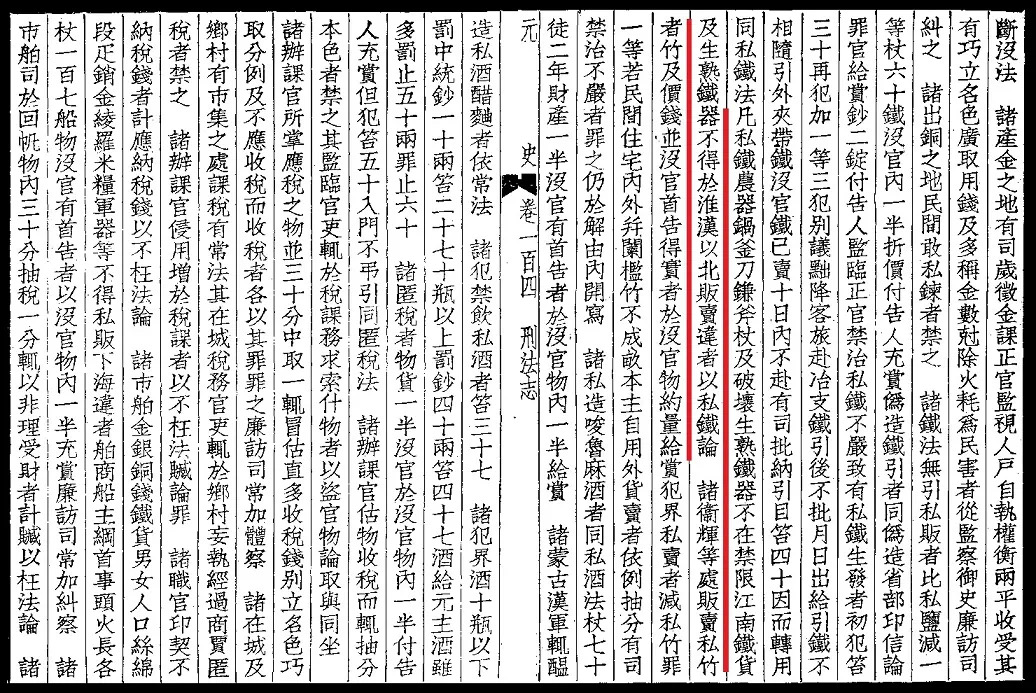 斷沒法　諸產金之地有司歲徵金課正官監視人戶自執權衡兩平收受其
有巧立名色廣取用錢及多稱金數剋除火耗爲民害者從監察御史廉訪司
糾之　諸出銅之地民間敢私鍊者禁之　諸鐵法無引私販者比私鹽減一
等杖六十鐵沒官內一半折價付告人充賞僞造鐵引者同僞造省部印信論
罪官給賞鈔二錠付告人監臨正官禁治私鐵不嚴致有私鐵生發者初犯笞
三十再犯加一等三犯別議黜降客旅赴冶支鐵引後不批月日出給引鐵不
相隨引外夾帶鐵沒官鐵已賣十日內不赴有司批納引目笞四十因而轉用
同私鐵法凡私鐵農器鍋釜刀鎌斧杖及破壞生熟鐵器不在禁限江南鐵貨
及生熟鐵器不得於淮漢以北販賣違者以私鐵論　諸衞輝等處販賣私竹
者竹及價錢並沒官首告得實者於沒官物約量給賞犯界私賣者減私竹罪
一等若民間住宅內外幷闌檻竹不成畝本主自用外貨賣者依例抽分有司
禁治不嚴者罪之仍於解由內開寫　諸私造唆魯麻酒者同私酒法杖七十
徒二年財產一半沒官有首告者於沒官物內一半給賞　諸蒙古漢軍輒醞
元　史　卷一百四　刑法志
造私酒醋麴者依常法　諸犯禁飲私酒者笞三十七　諸犯界酒十瓶以下
罰中統鈔一十兩笞二十七十瓶以上罰鈔四十兩笞四十七酒給元主酒雖
多罰止五十兩罪止六十　諸匿稅者物貨一半沒官於沒官物內一半付告
人充賞但犯笞五十入門不弔引同匿稅法　諸辦課官估物收稅而輒抽分
本色者禁之其監臨官吏輒於稅課務求索什物者以盜官物論取與同坐
諸辦課官所掌應稅之物並三十分中取一輒冒估直多收稅錢別立名色巧
取分例及不應收稅而收稅者各以其罪罪之廉訪司常加體察　諸在城及
鄉村有市集之處課稅有常法其在城稅務官吏輒於鄉村妄執經過商賈匿
稅者禁之　諸辦課官侵用增餘稅課者以不枉法贓論罪　諸職官印契不
納稅錢者計應納稅錢以不枉法論　諸市舶金銀銅錢鐵貨男女人口絲綿
段疋銷金綾羅米糧軍器等不得私販下海違者舶商船主綱首事頭火長各
杖一百七船物沒官有首告者以沒官物內一半充賞廉訪司常加糾察　諸
市舶司於回帆物內三十分抽稅一分輒以非理受財者計贓以枉法論　諸